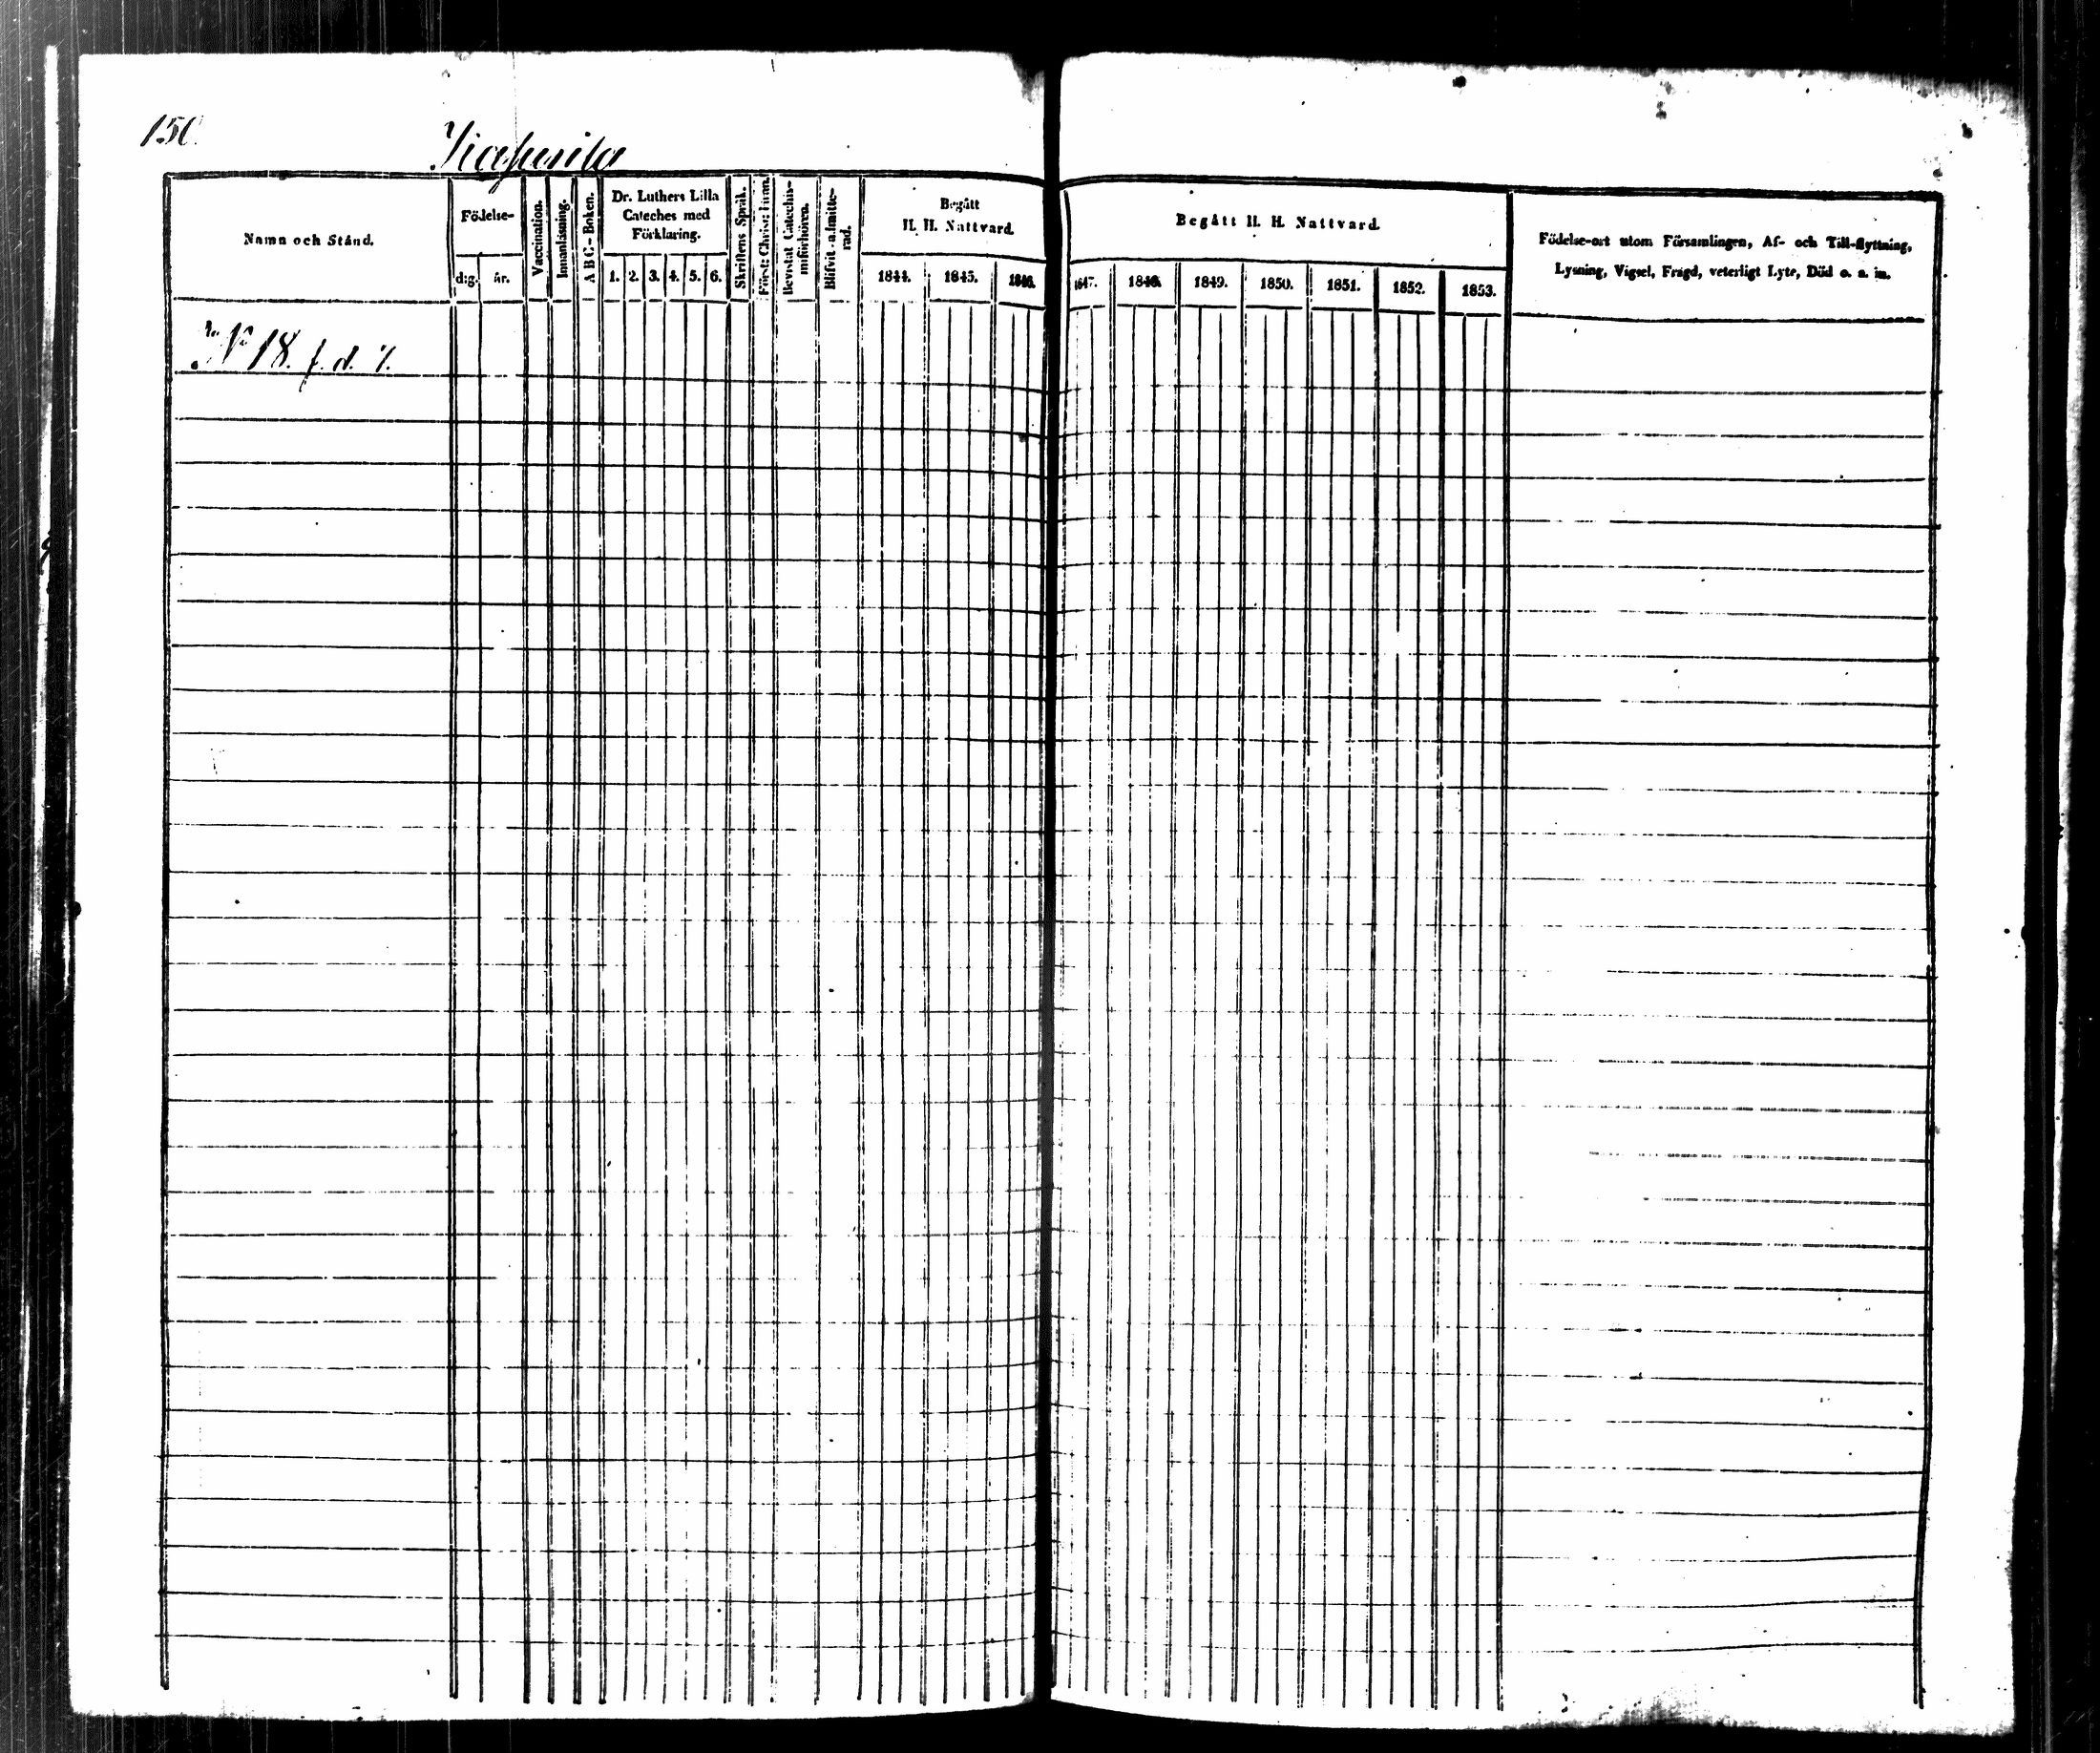 150
Namn och Stånd.
Födelse-
dig.
år.
Vaccination.
Innanläsning.
A B C - Boken.
Dr. Luthers Lilla
Cateches med
Förklaring.
1. 2. 3. 4. 5. 6.
Skriftens Språk.
Bevistat Catechis-
miförhören.
Blifvit admitte-
rad.
Begått
H. H. Nattvard.
1844. 1845. 1846.
Begått H. H. Nattvard.
1847. 1848. 1849. 1850. 1851. 1852. 1853.
Födelse-ort utom Församlingen, Af- och Till-flyttning,
Lysning, Vigsel, Frägd, veterligt Lyte, Död o. s. m.
No 18. f. d. 7.